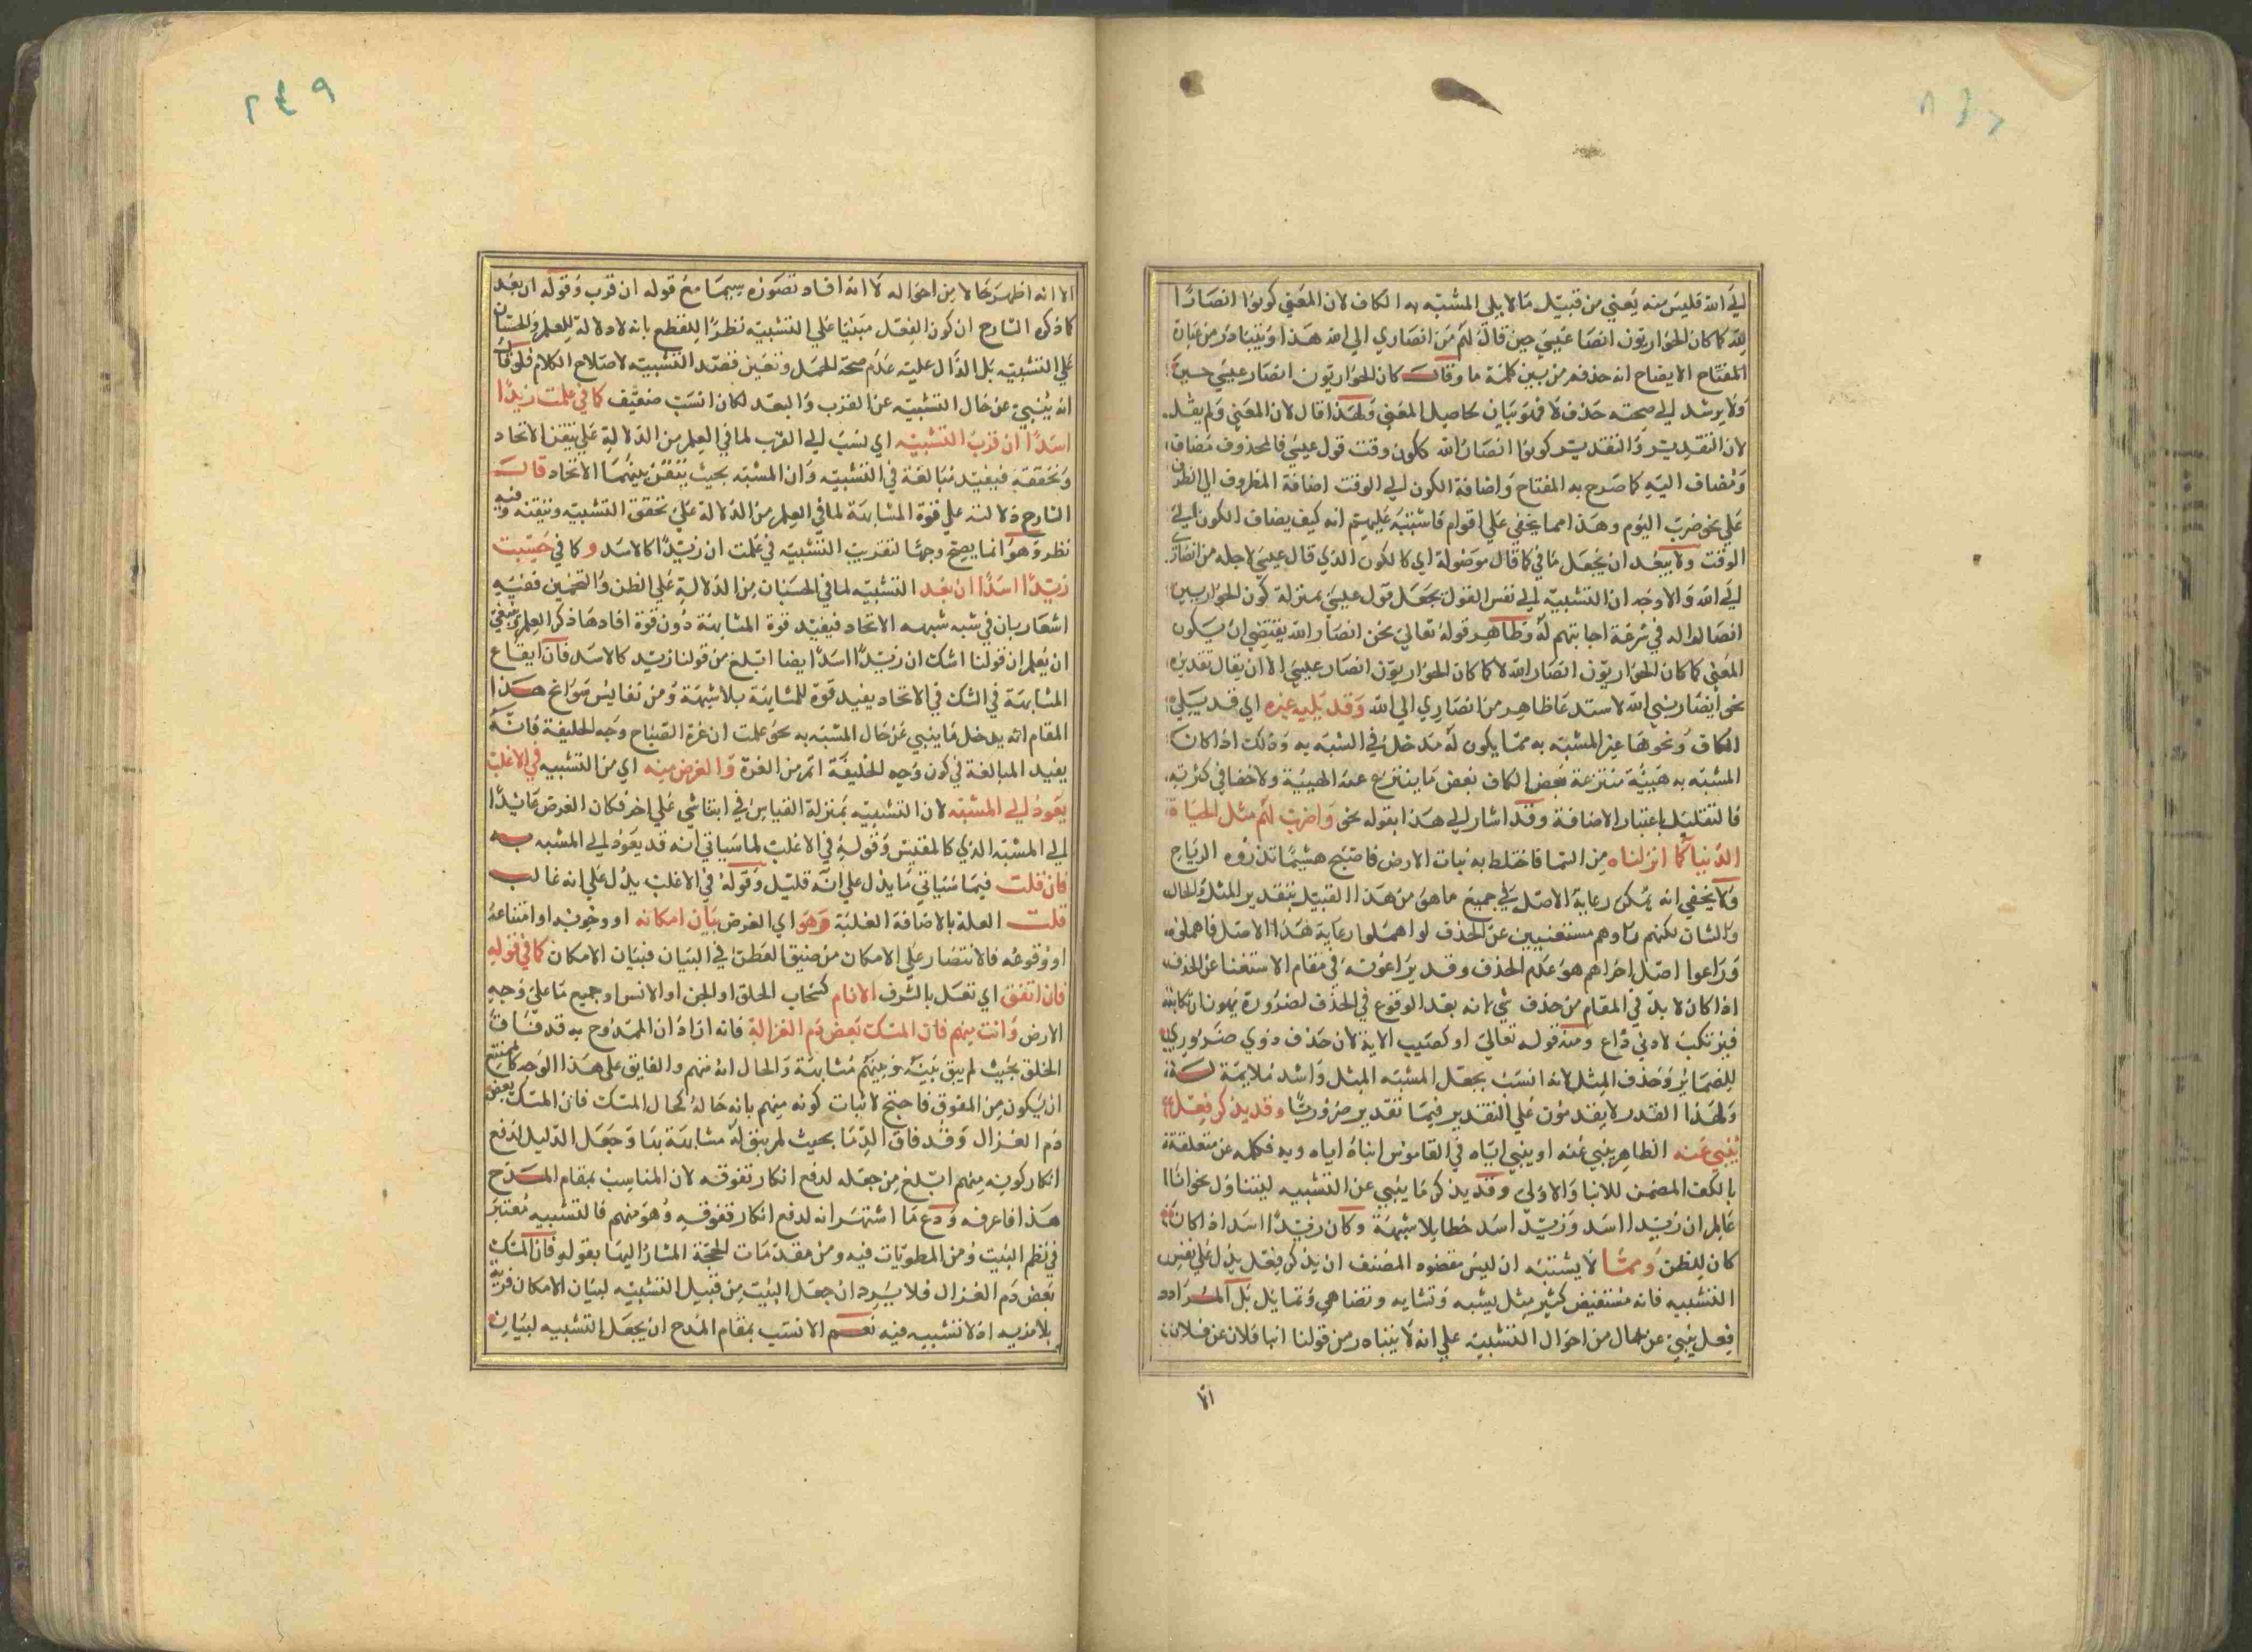 الي الله فليس منه يعني من قبيل ما لا يلي المشبه به الكاف لان المعني كونوا انصارا
لله كما كان الحواريون انصار عيسي حين قال لهم من انصاري الي الله هذا ويتبادر من عبارة
المفتاح الايضاح انه حذف من بين كلمة ما وقال كان الحواريون انصار عيسي حين
ولا يرشد الي صحته حذف لا فلو بيان حاصل المعني ولهذا قال لان المعني ولم يقل
لان التقدير والتقدير كونوا انصار الله ككون وقت قول عيسي فالمحذوف مضاف
ومضاف اليه كما صرح به المفتاح واضافة الكون الي الوقت اضافة المظروف الي الظرف
علي نحو ضرب اليوم وهذا مما يخفي علي اقوام فاشتبه عليهم انه كيف يضاف الكون الي
الوقت ولا يبعد ان يجعل ما في كما قال موصولة اي كالكون الذي قال عيسي لاجله من انصاري
الي الله والاوجه ان التشبيه الي نفس القول بجعل قول عيسي بمنزلة كون الحواريين
انصارا له في سرعة اجابتهم له وظاهر قوله تعالي نحن انصار الله يقتضي ان يكون
المعني كما كان الحواريون انصار الله لا كما كان الحواريون انصار عيسي الا ان يقال تقديره
نحن انصار نبي الله لاستدعا ظاهر من انصاري الي الله وقد يليه غيره اي قد يلي
الكاف ونحوها غير المشبه به مما يكون له مدخل في المشبه به وذلك اذا كان
المشبه به هيئة منتزعة فبعض الكاف بعض ما ينتزع عنه الهيئة ولا خفا في كثرته
فالتقليل باعتبار الاضافة وقد اشار الي هذا بقوله نحو واضرب لهم مثل الحياة
الدنيا كما انزلناه من السما فاختلط به نبات الارض فاصبح هشيما تذروه الرياح
ولا يخفي انه يمكن رعاية الاصل في جميع ما هو من هذا القبيل بتقدير المثل والحال
والشان لكنهم راوهم مستغنيين عن الحذف لو اهملوا رعاية هذا الاصل فاهملوه
وراعوا اصل اخر اهم هو عدم الحذف وقد يراعونه في مقام الاستغنا عن الحذف
اذا كان لا بد في المقام من حذف شي لانه بعد الوقوع في الحذف لضرورة يهون ارتكابه
فيرتكب لادني داع ومنه قوله تعالي او كصيب الاية لان حذف ذوي ضروري
للضمائر وحذف المثل لانه انسب بجعل المشبه المثل واشد ملايمة له
ولهذا القدر لا يقدمون علي التقدير فيما تقدير ضرورتا وقد يذكر فعل
ينبي عنه الظاهر ينبي عنه او ينبي اياه في القاموس انباه اياه وبه فكلمه عن متعلقة
بالكف المضمن للانبا والاولي وقد يذكر ما ينبي عن التشبيه ليتناول نحو انا
عالم ان زيدا اسد وزيد اسد خطا بلا شبهة وكان زيدا اسد اذا كان
كان للظن ومما لا يشتبه ان ليس مقصود المصنف ان يذكر فعل يدل علي نفس
التشبيه فانه مستفيض كثير مثل يشبه وتشابه وتضاهي وتماثل بل المراد
فعل ينبي عن حال من احوال التشبيه علي انه لا يتبادر من قولنا انبا فلان عن فلان
الا
٢٤٩
الا انه اظهر حالا من احواله لا انه افاد تصوره سيما مع قوله ان قرب وقوله ان بعد
كما ذكره الشارح ان كون الفعل مبنيا علي التشبيه نظرا للقطع بانه لا دلالة للعلم والحسبان
علي التشبيه بل الدال عليه عدم صحة الحمل وتعين قصد التشبيه لاصلاح الكلام فلو قال
انه ينبي عن حال التشبيه عن القرب والبعد لكان انسب ضعيف كما في علمت زيدا
اسدا ان قرب التشبيه اي نسب الي القرب لما في العلم من الدلالة علي تيقن الاتحاد
وتحققه فيفيد مبالغة في التشبيه وان المشبه بحيث يتيقن بينهما الاتحاد قال
الشارح دلالته علي قوة المشابهة لما في العلم من الدلالة علي تحقق التشبيه وتيقنه وفيه
نظر وهو انما يصح وجها لتقريب التشبيه في علمت ان زيدا كالاسد وكما في حسبت
زيدا اسدا ان بعد التشبيه لما في الحسبان من الدلالة علي الظن والتخمين ففيه
اشعار بان في شبه شبهه الاتحاد فيفيد قوة المشابهة دون قوة افادها ذكر العلم وينبغي
ان يعلم ان قولنا اشك ان زيدا اسد ايضا ابلغ من قولنا زيد كالاسد فان ايقاع
المشابهة في الشك في الاتحاد يفيد قوة للمشابهة بلا شبهة ومن نفايس سوانح هذا
المقام انه يدخل ما ينبي عن حال المشبه به نحو علمت ان غرة الصباح وجه الخليفة فانه
يفيد المبالغة في كون وجه الخليفة اتم من الغرة والغرض منه اي من التشبيه في الاغلب
يعود الي المشبه لان التشبيه بمنزلة القياس في ابتنا شي علي اخر فكان الغرض عائدا
الي المشبه الذي كالمقيس وقوله في الاغلب لما سياتي انه قد يعود الي المشبه به
فان قلت فيما سياتي ما يدل علي انه قليل وقوله في الاغلب يدل علي انه غالب
قلت العلة بالاضافة الغلبة وهو اي الغرض بيان امكانه او وجوبه او امتناعه
او وقوعه فالاقتصار علي الامكان من ضيق العطن في البيان فبيان الامكان كما في قوله
فان تفق اي تفضل بالشرف الانام كسحاب الخلق او الجن او الانس او جميع ما علي وجه
الارض وانت منهم فان المسك بعض دم الغزالة فانه اراد ان الممدوح به قد فاق
الخلق بحيث لم يبق بينه وبينهم مشابهة والحال انه منهم والفايق علي هذا الوجه كالممتنع
ان يكون من المفوق فاحتج لاثبات كونه منهم بانه حاله كحال المسك فان المسك بعض
دم الغزال وقد فاق الدما بحيث لم يبق له مشابهة بها وجعل الدليل لدفع
انكار كونه منهم ابلغ من جعله لدفع انكار تفوقه لان المناسب بمقام المدح
هذا فاعرفه ودع ما اشتهر انه لدفع انكار تفوقه وهو منهم فالتشبيه معتبر
في نظم البيت ومن المطويات فيه ومن مقدمات الحجة المشار اليها بقوله فان المسك
بعض دم الغزال فلا يرد ان جعل البيت من قبيل التشبيه لبيان الامكان فرية
بلا مزيه اذ لا تشبيه فيه نعم الانسب بمقام المدح ان يجعل التشبيه لبيان